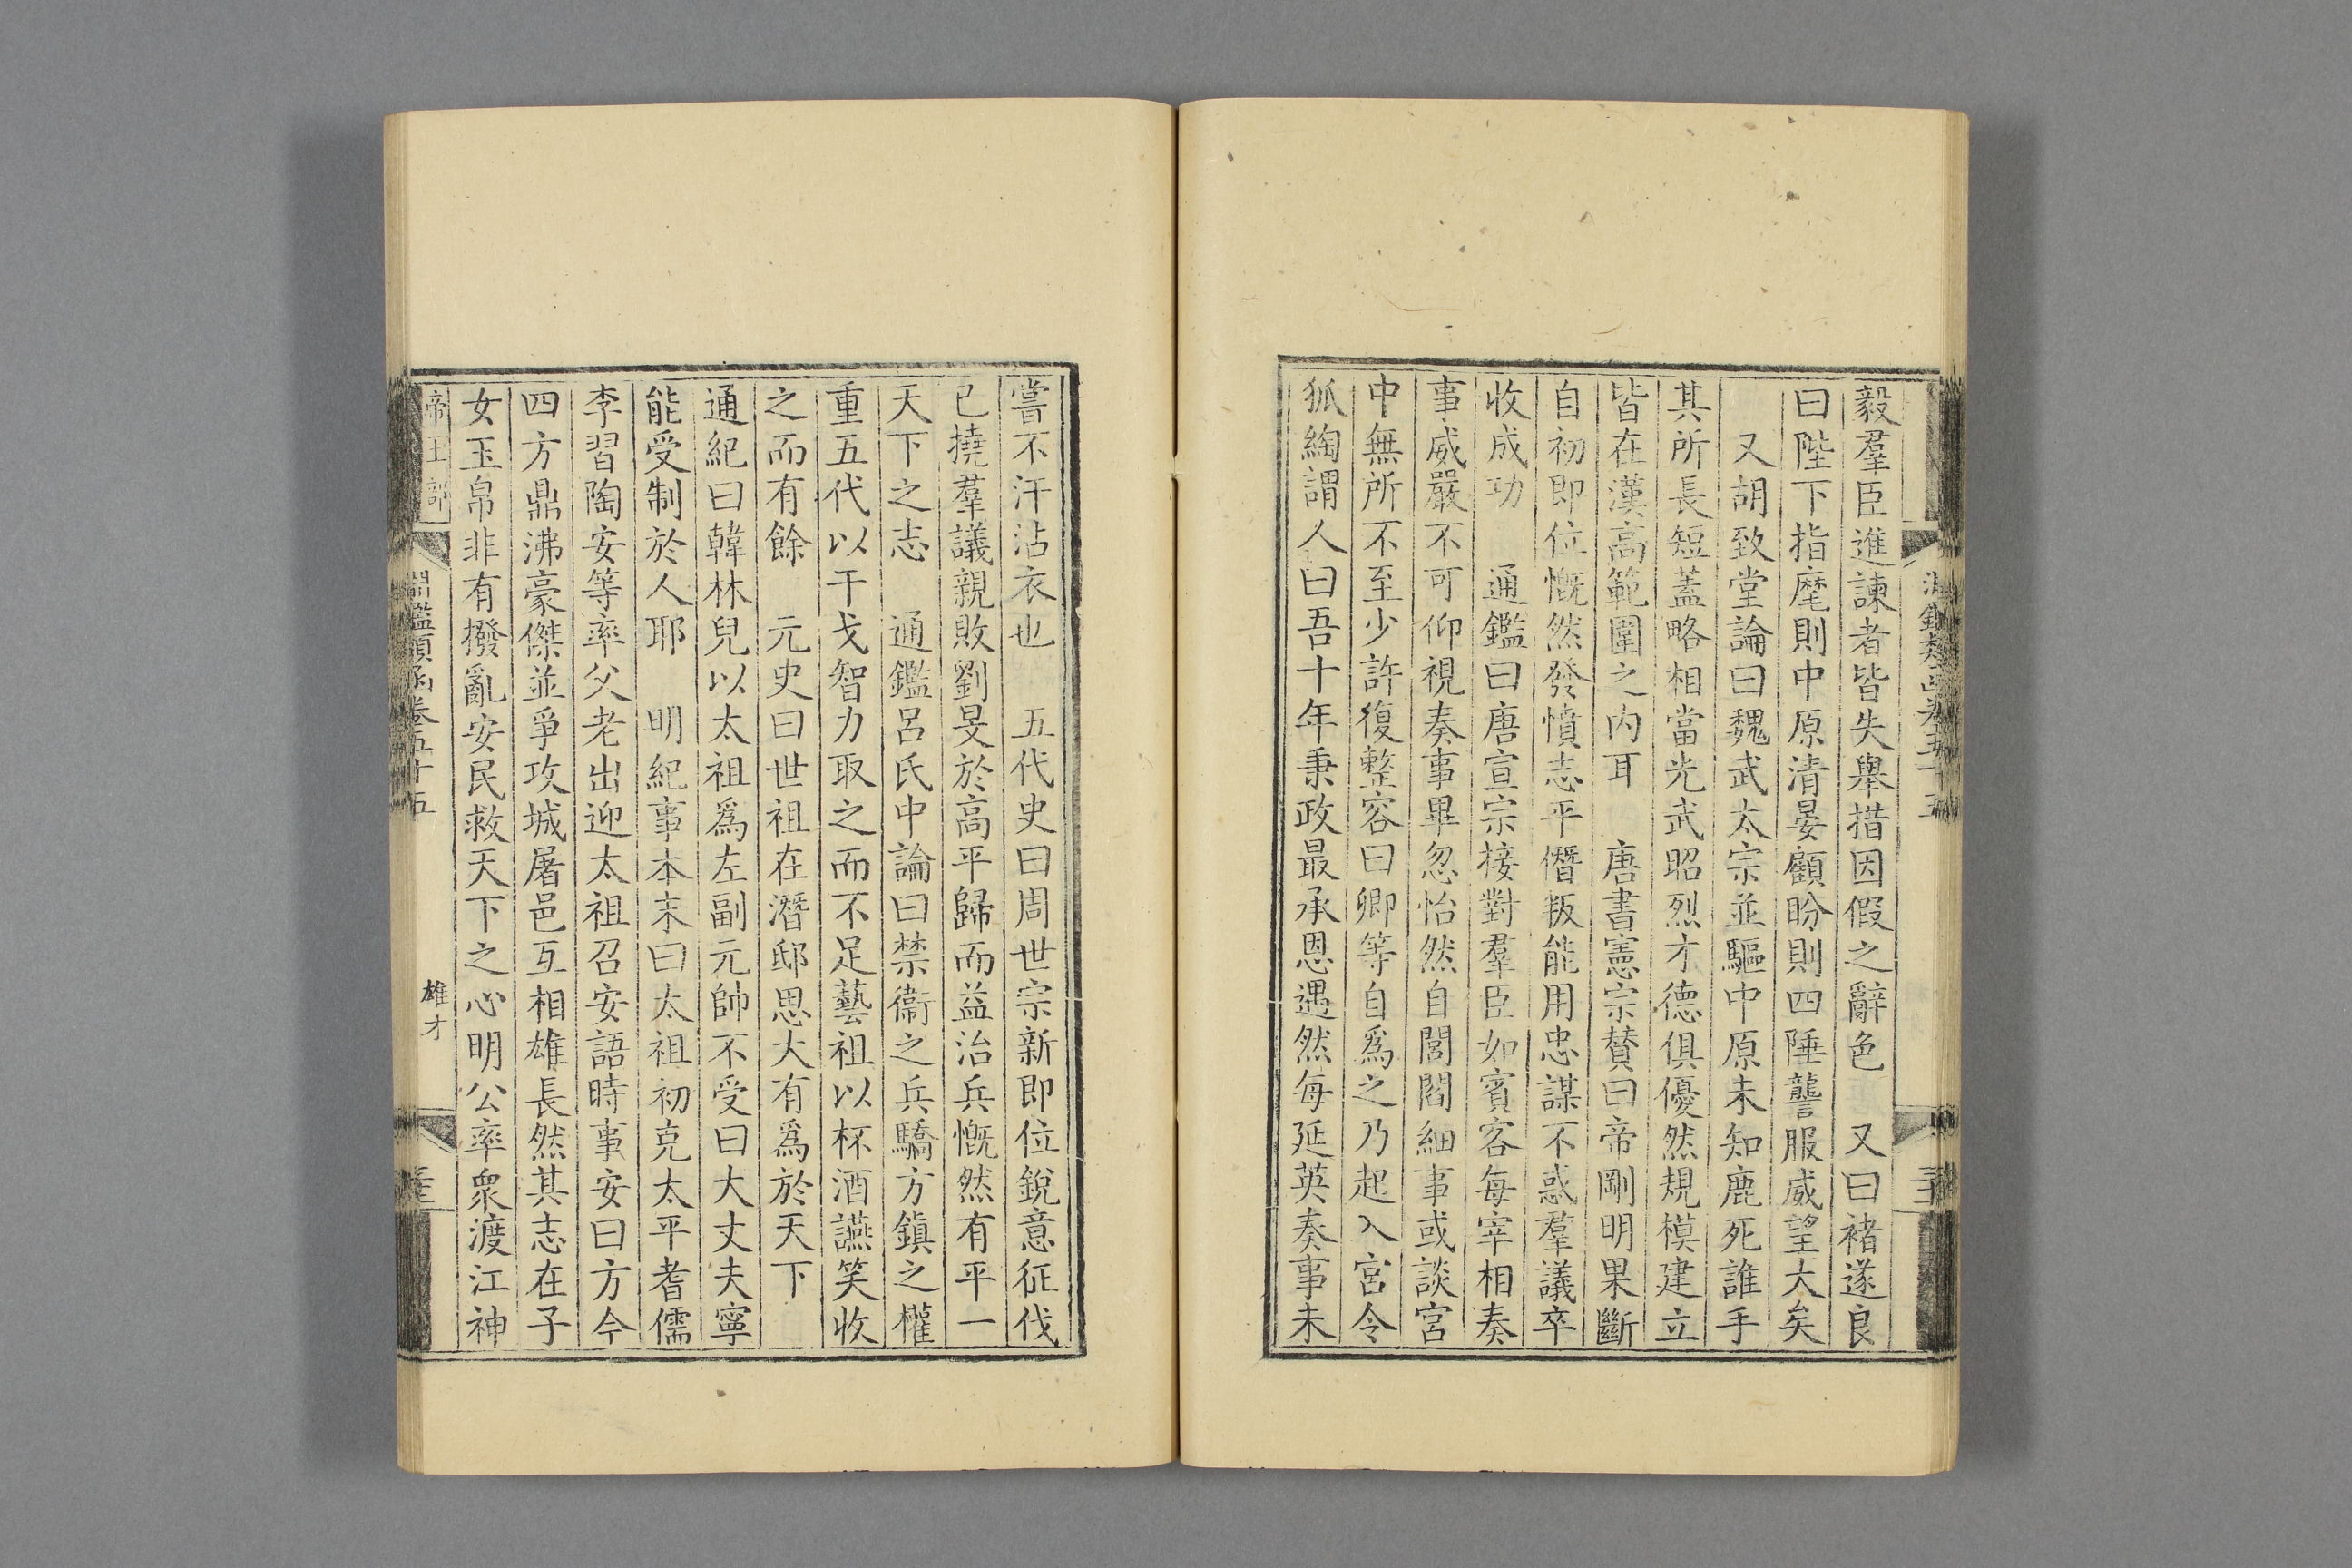 毅羣臣進諫者皆失舉措因假之辭色　又曰褚遂良
曰陛下指麾則中原清晏顧盼則四陲讋服威望大矣
又胡致堂論曰魏武太宗並驅中原未知鹿死誰手
其所長短蓋略相當光武昭烈才德俱優然規模建立
皆在漢高範圍之內耳　唐書憲宗贊曰帝剛明果斷
自初即位慨然發憤志平僭叛能用忠謀不惑羣議卒
收成功　通鑑曰唐宣宗接對羣臣如賓客每宰相奏
事威嚴不可仰視奏事畢忽怡然自閭閻細事或談宮
中無所不至少許復整容曰卿等自爲之乃起入宮令
狐綯謂人曰吾十年秉政最承恩遇然每延英奏事未
嘗不汗沾衣也　五代史曰周世宗新即位銳意征伐
已撓羣議親敗劉旻於高平歸而益治兵慨然有平一
天下之志　通鑑呂氏中論曰禁衞之兵驕方鎮之權
重五代以干戈智力取之而不足藝祖以杯酒讌笑收
之而有餘　元史曰世祖在潛邸思大有爲於天下
通紀曰韓林兒以太祖爲左副元帥不受曰大丈夫寧
能受制於人耶　明紀事本末曰太祖初克太平耆儒
李習陶安等率父老出迎太祖召安語時事安曰方今
四方鼎沸豪傑並爭攻城屠邑互相雄長然其志在子
女玉帛非有撥亂安民救天下之心明公率衆渡江神
帝王部
淵鑑類函卷五十五
雄才